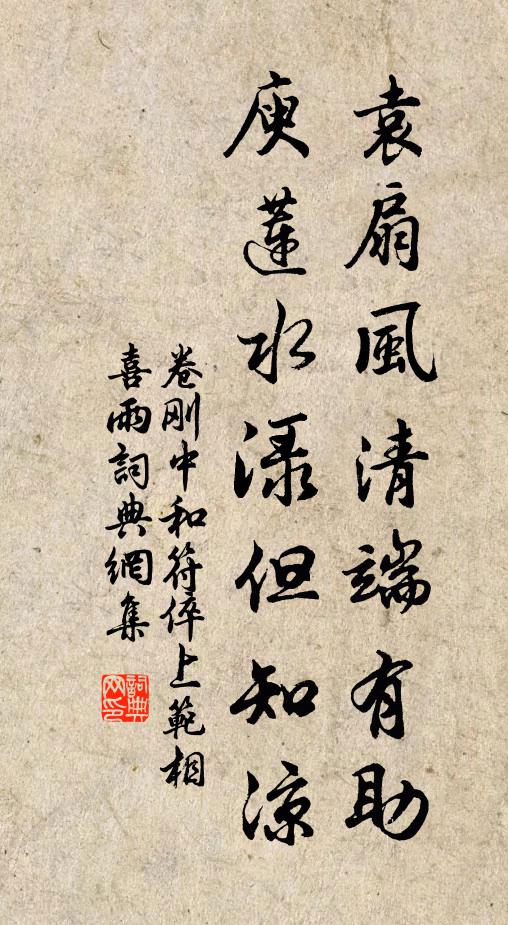 袁扇風清端有助
庾蓮水渌但知涼
卷剛中和符倅上範相
喜雨詞典網集
詞典網印